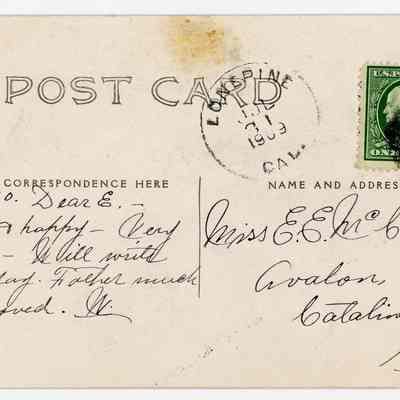 POST CARD
LONE PINE
JUL
31
1909
CAL.
ONE
CORRESPONDENCE HERE
NAME AND ADDRES
o. Dear E. —
& happy — Very
— Will write
day. Father much
oved. W.
Miss E. E. Mc C
Avalon
Catalin